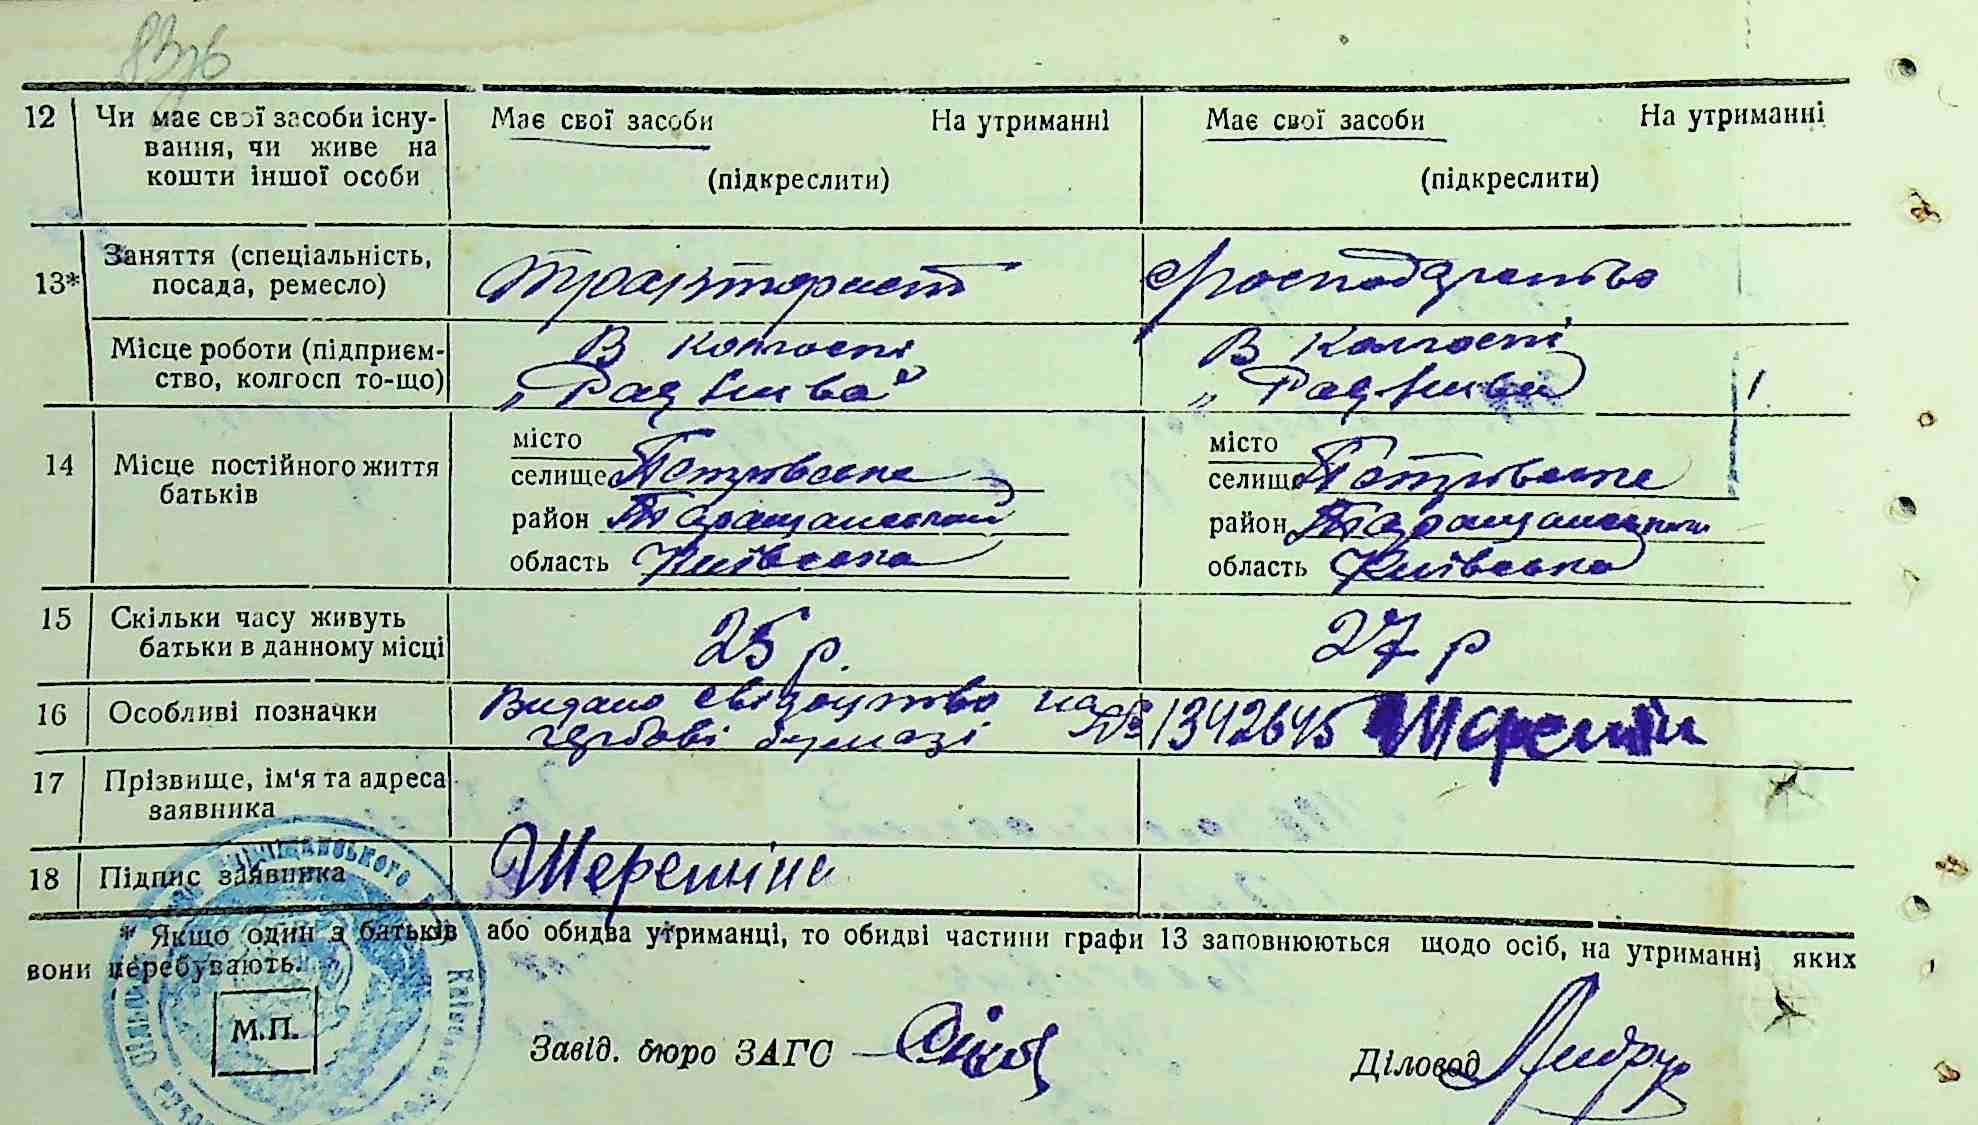 12 Чи має свої засоби існу- Має свої засоби На утриманні Має свої засоби На утриманні
вання, чи живе на
кошти іншої особи (підкреслити) (підкреслити)
Заняття (спеціальність,
13* посада, ремесло) тракторист господарство
Місце роботи (підприєм- В колгоспі В колгоспі
ство, колгосп то-що) „Рад Нива" „Рад. Нива
місто місто
14 Місце постійного життя селище Петрівське селище Петрівське
батьків район Таращанський район Таращанський
область Київська область Київська
15 Скільки часу живуть 25 р. 27 р
батьки в данному місці
16 Особливі позначки Видано свідоцтво на
гербові бумазі № 1342645
17 Прізвище, ім'я та адреса
заявника
18 Підпис заявника
* Якщо один з батьків або обидва утриманці, то обидві частини графи 13 заповнюються щодо осіб, на утриманні яких
вони перебувають.
М.П. Завід. бюро ЗАГС Діловод